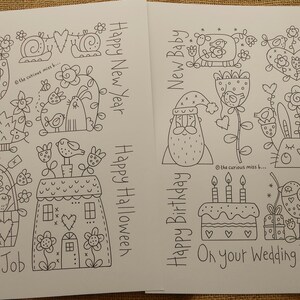 Happy New Year
© the curious miss k...
Happy Halloween
Job
New Baby
© the curious miss k...
Happy Birthday
On your Wedding